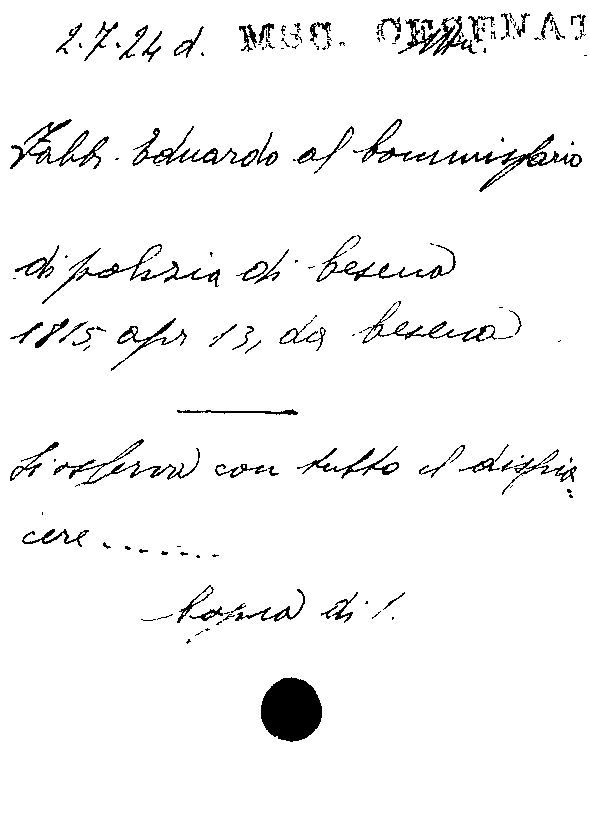 2.7.24 d. MSS. CESENAT
Fabbr. Eduardo al Commissario
di polizia di Cesena
1815, apr 13, da Cesena
Si osserva con tutto il dispia
cere.......
Copia di 1.